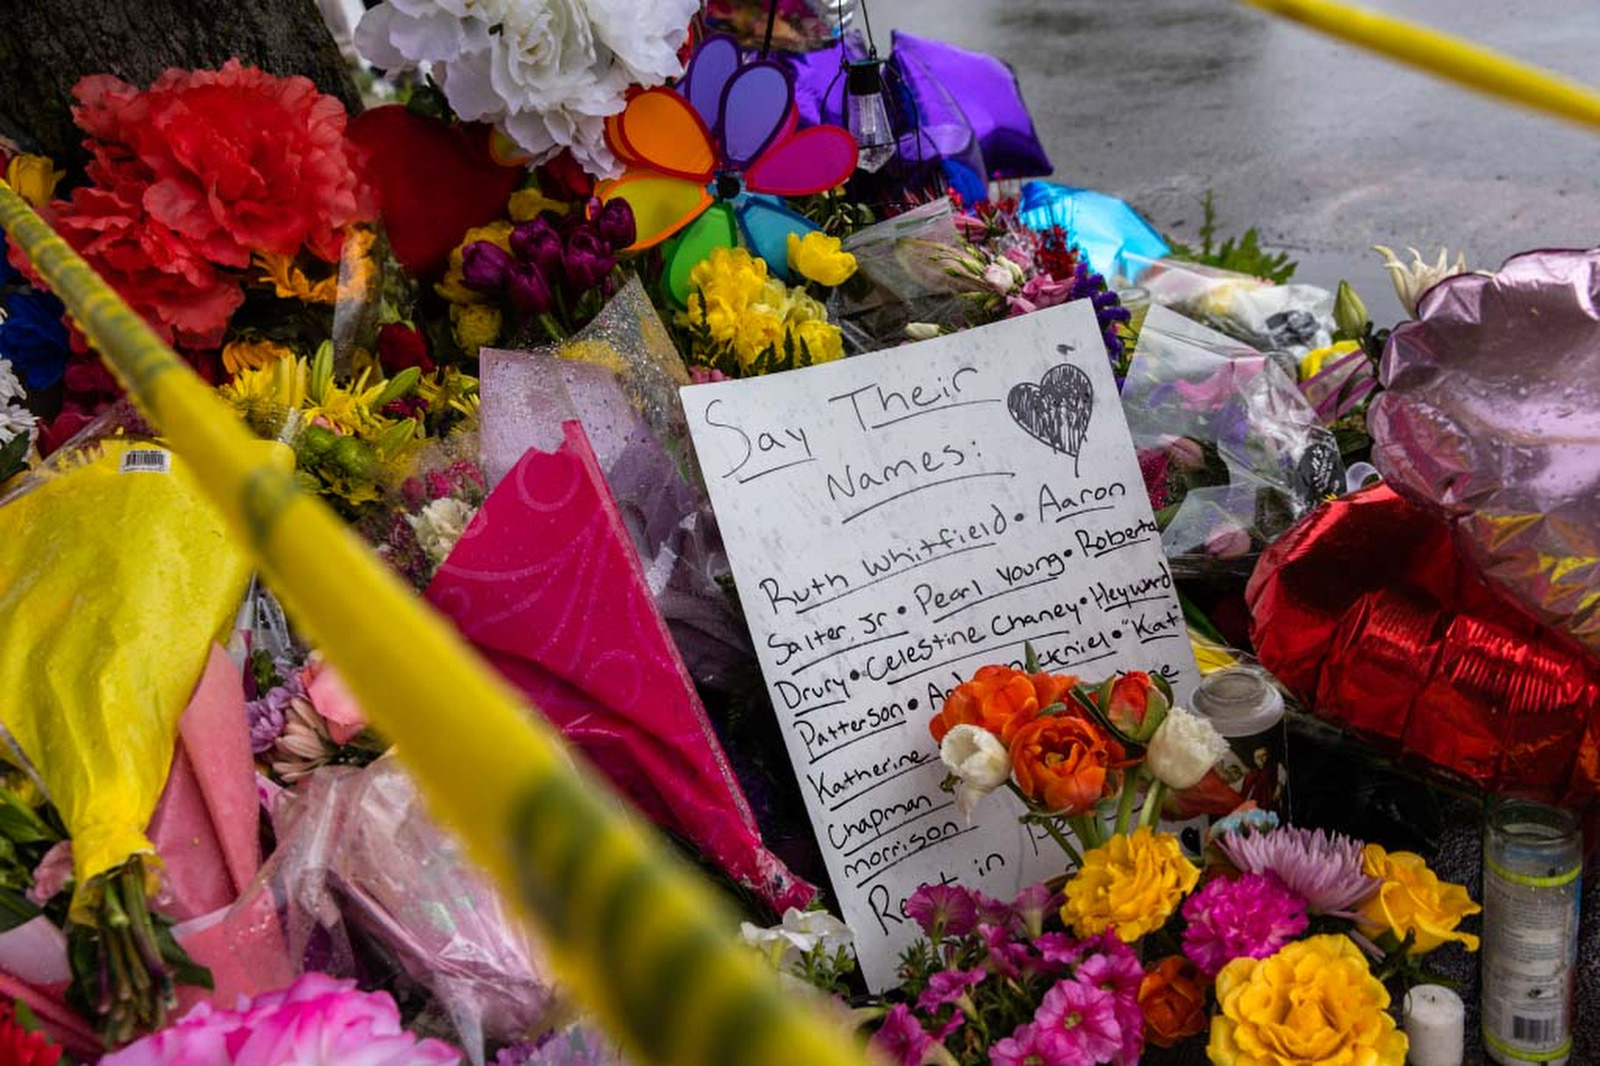 Say Their
Names:
Ruth Whitfield • Aaron
Salter, Jr • Pearl Young • Roberta
Drury • Celestine Chaney • Heyward
Patterson • ckniel • "Kat
Katherine
Chapman
morrison
in